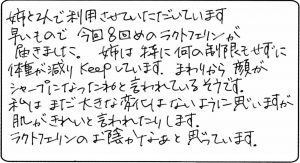 姉と2人で利用させていただいています
早いもので今回8回めのラクトフェリンが
届きました。姉は特に何の制限もせずに
体重が減りKeepしています。まわりから顔が
シャープになったねと言われているそうです。
私はまだ大きな変化はないように思いますが
肌がきれいと言われたりします。
ラクトフェリンのお陰かなぁと思っています。